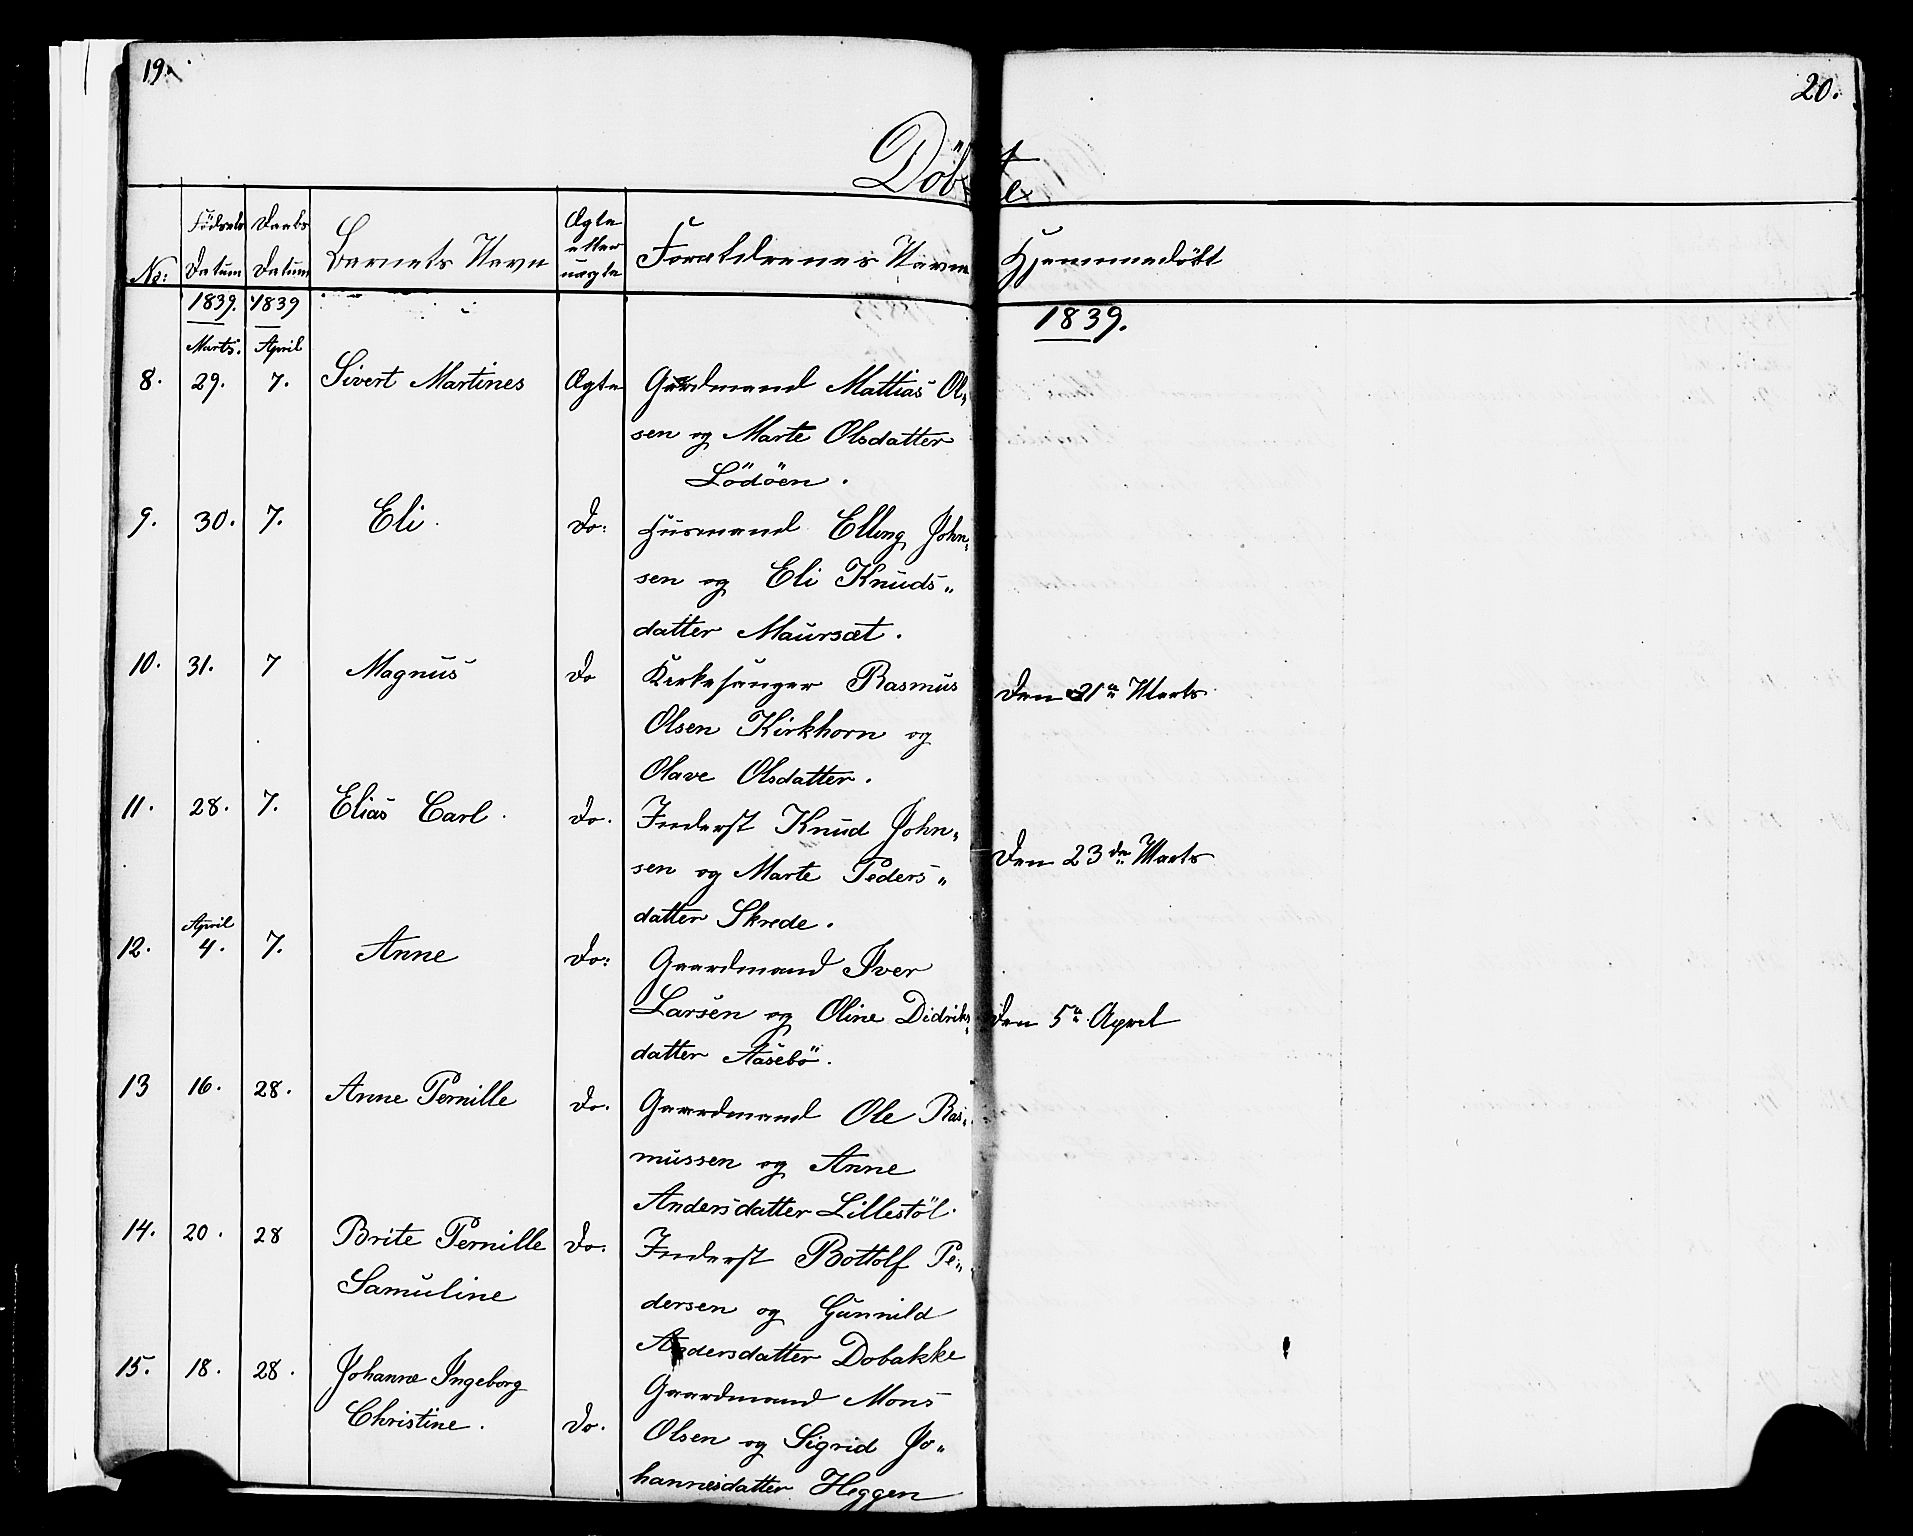 19.
20.
Döbte
No:
Födsels
Datum
Daabs
Datum
Barnets Navn
Ægte
eller
uægte
Forældrenes Navne
Hjemmedøbt
1839.
1839
1839.
Marts.
April
8.
29.
7.
Sivert Martines
Ægte
Gaardmand Mattias Ol„
sen og Marte Olsdatter
Lödöen.
9.
30.
7.
Eli.
Do:
Husmand Elling John„
sen og Eli Knuds„
datter Maursæt.
10.
31.
7
Magnus
Do
Kirkesanger Rasmus
Olsen Kirkhorn og
Olave Olsdatter.
Den 31te Marts
11.
28.
7.
Elias Carl.
Do.
Inderst Knud John„
sen og Marte Peders„
datter Skrede.
Den 23de Marts
April
12.
4.
7.
Anne
Do:
Gaardmand Iver
Larsen og Oline Didriks„
datter Aasebö.
Den 5te April
13
16.
28.
Anne Pernille
Do.
Gaardmand Ole Ras„
mussen og Anne
Andersdatter Lillestöl.
14.
20.
28
Brite Pernille
Samuline
Do.
Inderst Bottolf Pe„
dersen og Gunnild
Andersdatter Dobakke
15.
18.
28.
Johanne Ingeborg
Christine.
Do.
Gaardmand Mons
Olsen og Sigrid Jo„
hannesdatter Heggen